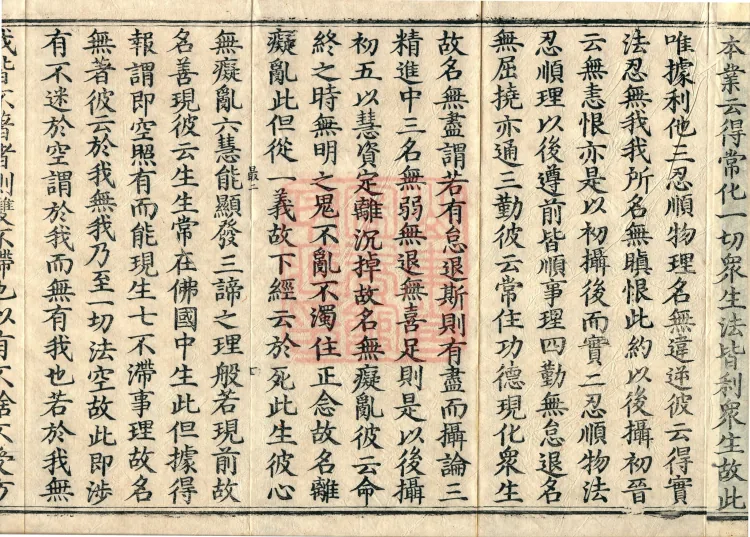 本業云得常化一切衆生法皆利衆生故此
唯據利他三忍順物理名無違逆彼云得實
法忍無我我所名無瞋恨此約以後攝初晉
云無恚恨亦是以初攝後而實二忍順物法
忍順理以後遵前皆順事理四勤無怠退名
無屈撓亦通三勤彼云常住功德現化衆生
故名無盡謂若有怠退斯則有盡而攝論三
精進中三名無弱無退無喜足則是以後攝
初五以慧資定離沉掉故名無癡亂彼云命
終之時無明之鬼不亂不濁住正念故名離
癡亂此但從一義故下經云於死此生彼心
最二
無癡亂六慧能顯發三諦之理般若現前故
名善現彼云生生常在佛國中生此但據得
報謂即空照有而能現生七不滯事理故名
無著彼云於我無我乃至一切法空故此即涉
有不迷於空謂於我而無有我也若於我無
我皆不著者則雙不滯也以有不捨不受方